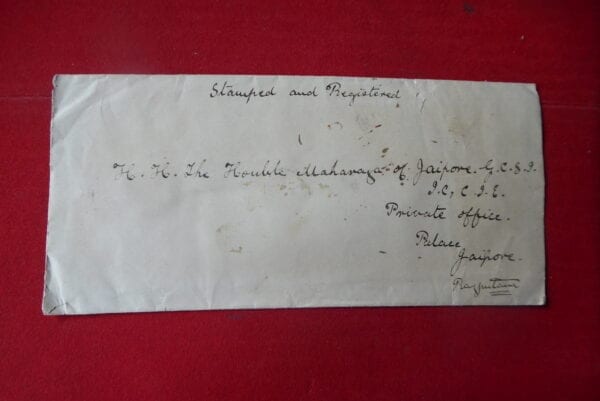 Stamped and Registered
H. H. The Honble Maharaja of Jaipore. G.C.S.I.
I.C, C.I.E.
Private office.
Palace
Jaipore.
Rajputana